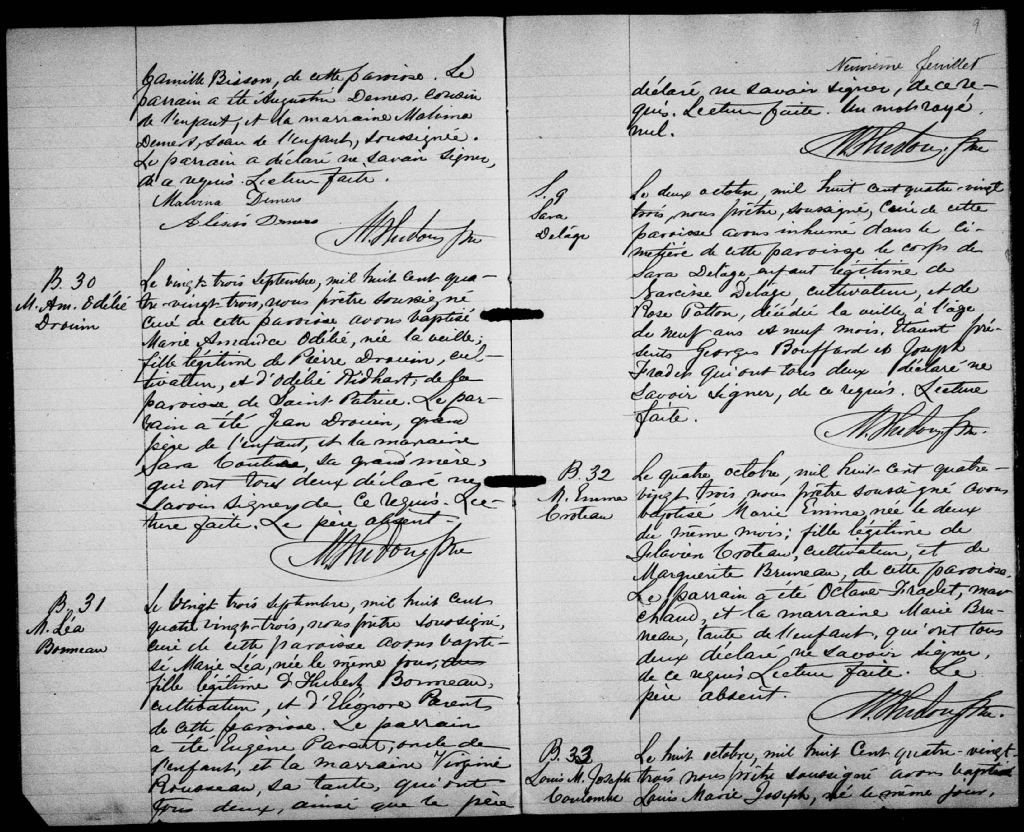 Camille Bisson, de cette paroisse. Le
parrain a été Augustin Demers, cousin
de l'enfant, et la marraine Malvina
Demers, sœur de l'enfant, soussignée.
Le parrain a déclaré ne savoir signer,
de ce requis. Lecture faite.
Malvina Demers
Alexis Demers
Ptre
B. 30
M. Am. Odélie
Drouin
Le vingt-trois septembre, mil huit cent qua-
tre-vingt-trois, nous prêtre soussigné
curé de cette paroisse avons baptisé
Marie Amanda Odélie, née la veille,
fille légitime de Pierre Drouin, cul-
tivateur, et d'Odélie de la
paroisse de Saint Patrice. Le par-
rain a été Jean Drouin, grand
père de l'enfant, et la marraine
Sara Couture, sa grand'mère,
qui ont tous deux déclaré ne
savoir signer, de ce requis. Lec-
ture faite. Le père absent.
Ptre
B. 31
M. Léa
Bonneau
Le vingt trois septembre, mil huit cent
quatre vingt-trois, nous prêtre soussigné,
curé de cette paroisse avons bapti-
sé Marie Léa, née le même jour,
fille légitime d'Hubert Bonneau,
cultivateur, et d'Eléonore Parents
de cette paroisse. Le parrain
a été Eugène Parent, oncle de
l'enfant, et la marraine Virginie
Rousseau, sa tante, qui ont
tous deux, ainsi que le père
9
Neuvième feuillet
déclaré ne savoir signer, de ce re-
quis. Lecture faite. Un mot rayé
nul.
Ptre
S. 9
Sara
Delâge
Le deux octobre, mil huit cent quatre-vingt
trois, nous prêtre, soussigné, curé de cette
paroisse avons inhumé dans le ci-
metière de cette paroisse le corps de
Sara Delage, enfant légitime de
Narcisse Delage cultivateur, et de
Rose Patton, décédée la veille, à l'âge
de neuf ans et neuf mois. Etaient pré-
sents Georges Bouffard et Joseph
Fradet qui ont tous deux déclaré ne
savoir signer, de ce requis. Lecture
faite.
Ptre.
B. 32
M. Emma
Croteau
Le quatre octobre, mil huit-cent quatre-
vingt trois, nous prêtre soussigné avons
baptisé Marie Emma, née le deux
du même mois, fille légitime de
Flavien Croteau, cultivateur, et de
Marguerite Bruneau, de cette paroisse.
Le parrain a été Octave Fradet, mar-
chand, et la marraine Marie Bru-
neau, tante de l'enfant, qui ont tous
deux déclaré ne savoir signer,
de ce requis Lecture faite. Le
père absent.
Ptre.
B. 33
Louis M. Joseph
Coulombe
Le huit octobre, mil huit cent quatre-vingt
trois nous prêtre soussigné avons baptisé
Louis Marie Joseph, né le même jour,